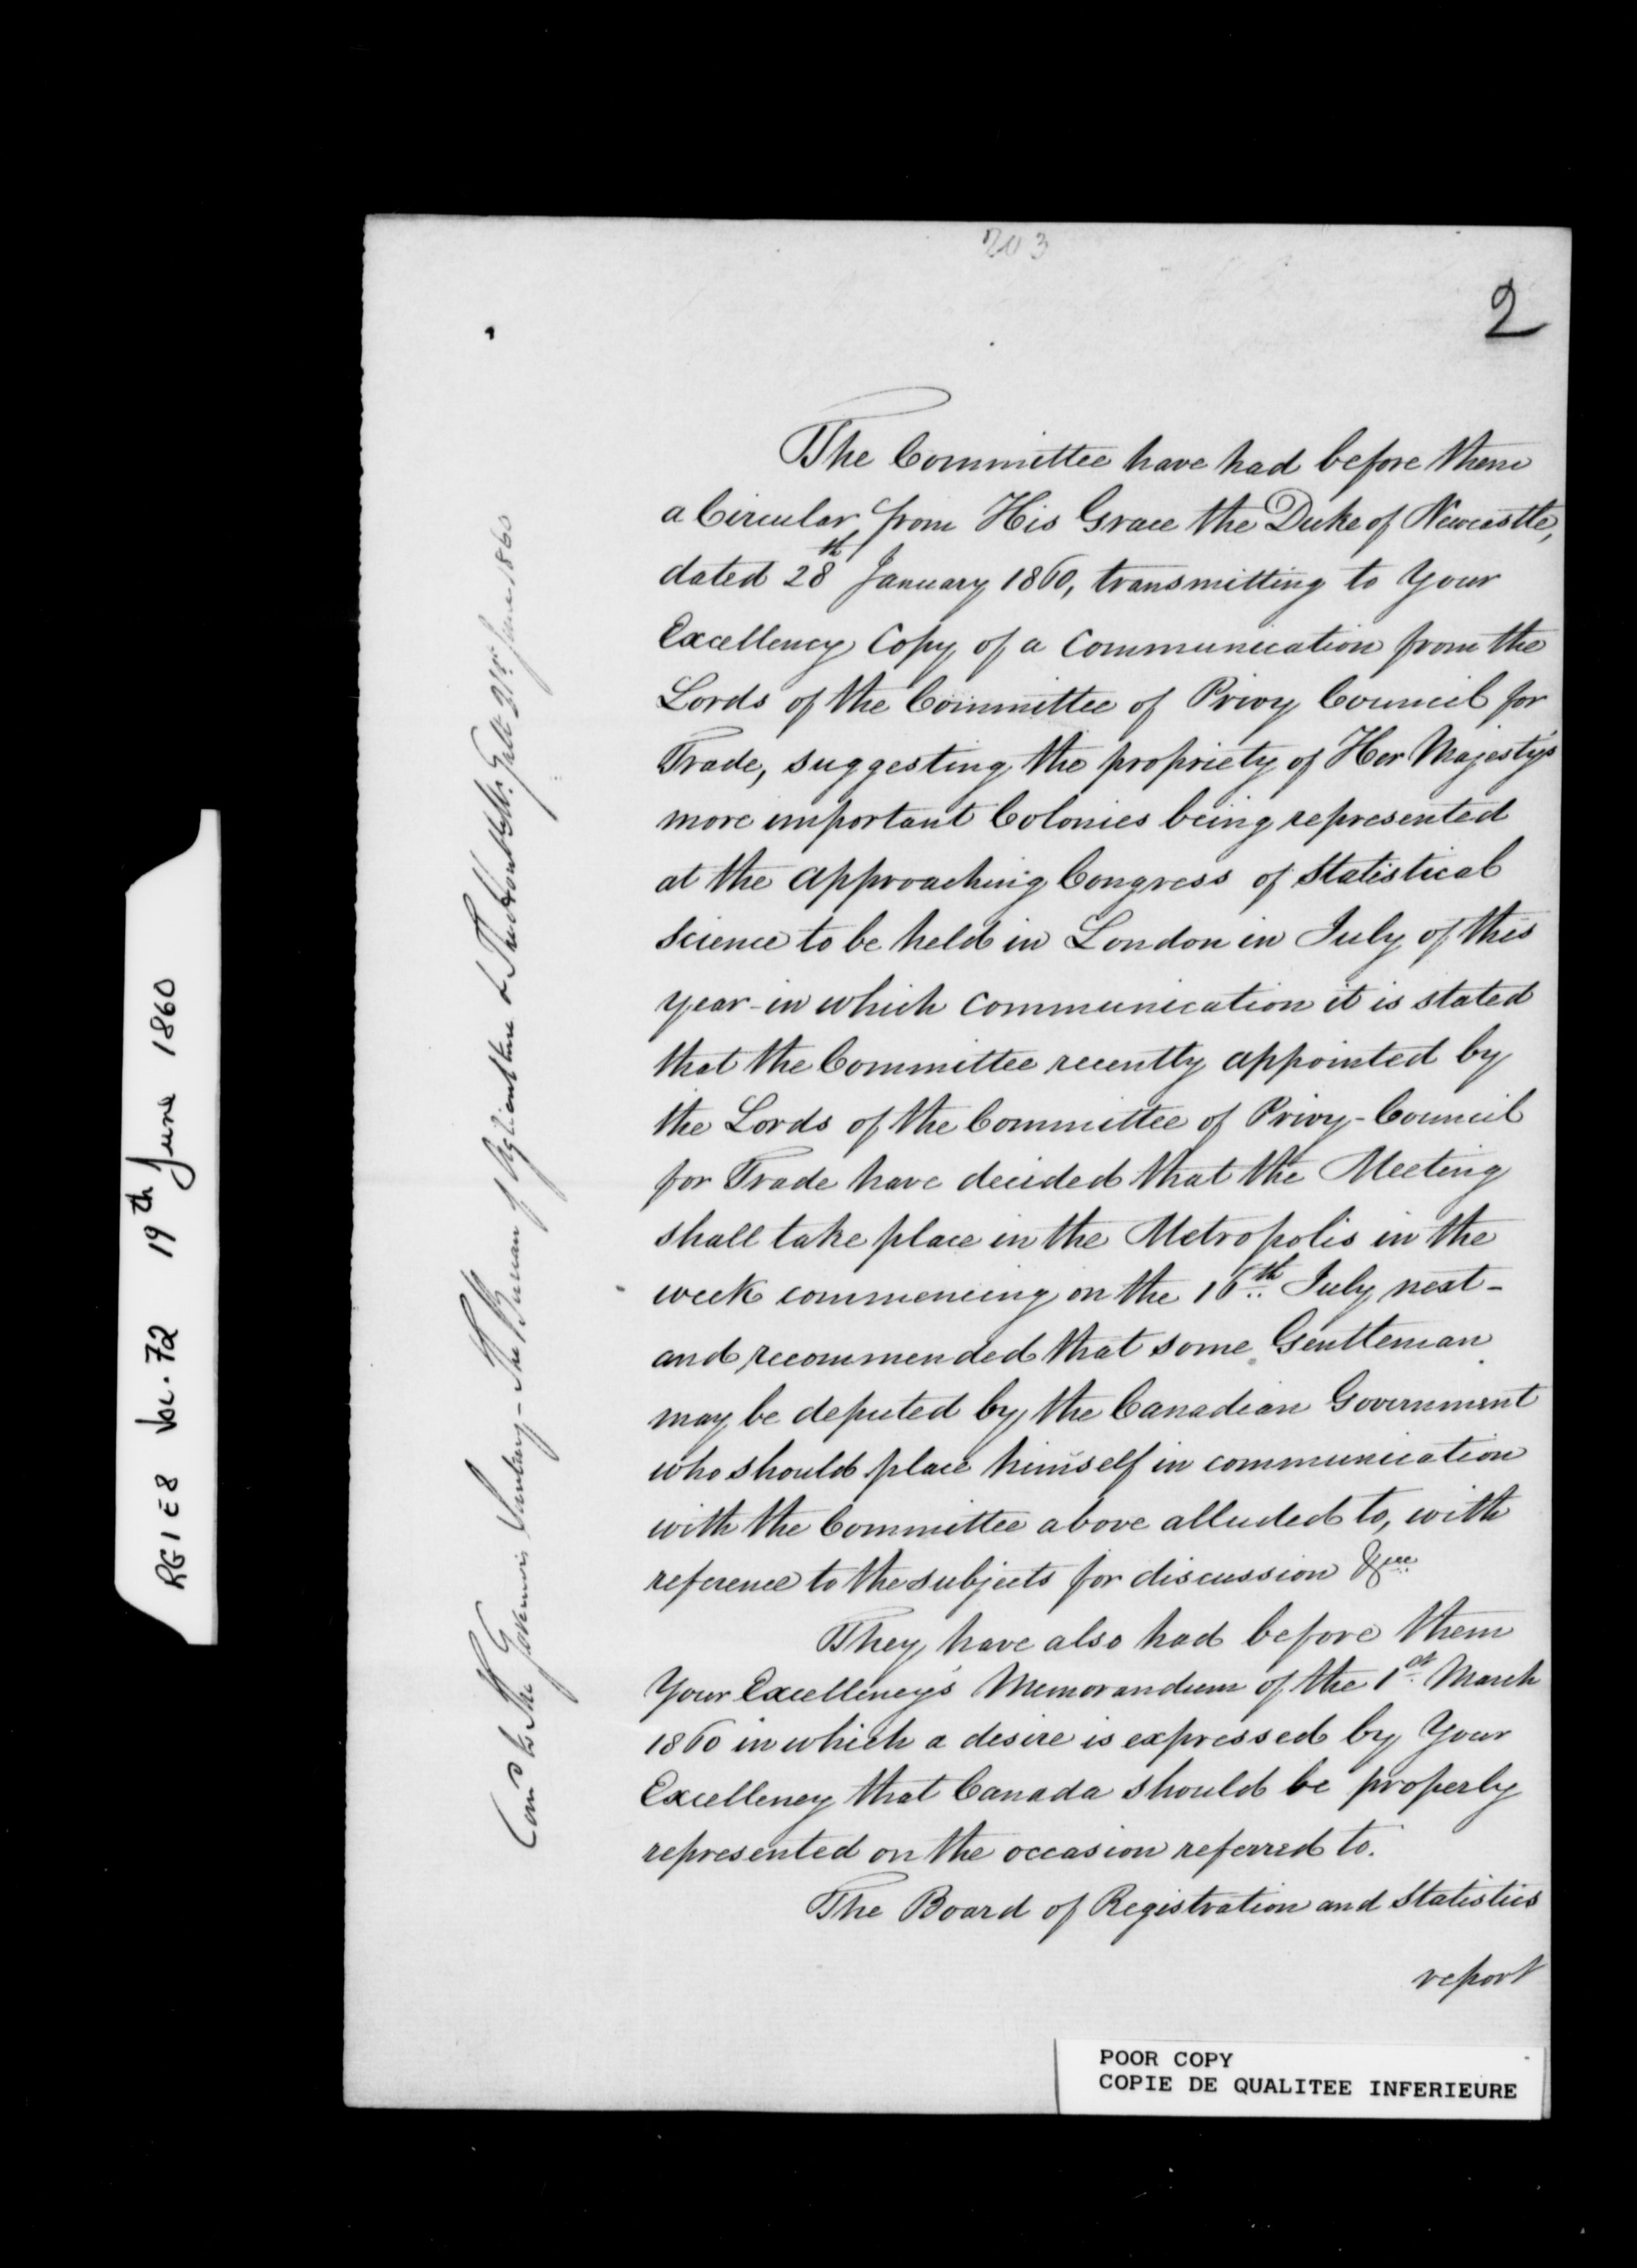 RG1 E8 Vol. 72 19th June 1860
203
2
Com'd to The Governor's Secretary - The Bureau of Agriculture & The Honble Mr. Galt 21st June 1860
The Committee have had before them
a Circular from His Grace the Duke of Newcastle,
dated 28th January 1860, transmitting to Your
Excellency Copy of a Communication from the
Lords of the Committee of Privy Council for
Trade, suggesting the propriety of Her Majesty's
more important Colonies being represented
at the approaching Congress of Statistical
Science to be held in London in July of this
year - in which communication it is stated
that the Committee recently appointed by
the Lords of the Committee of Privy - Council
for Trade have decided that the Meeting
shall take place in the Metropolis in the
week commencing on the 16th July next -
and recommended that some Gentleman
may be deputed by the Canadian Government
who should place himself in communication
with the Committee above alluded to, with
reference to the subjects for discussion &ca
They have also had before them
Your Excellency's Memorandum of the 1st March
1860 in which a desire is expressed by Your
Excellency that Canada should be properly
represented on the occasion referred to.
The Board of Registration and Statistics
report
POOR COPY
COPIE DE QUALITEE INFERIEURE